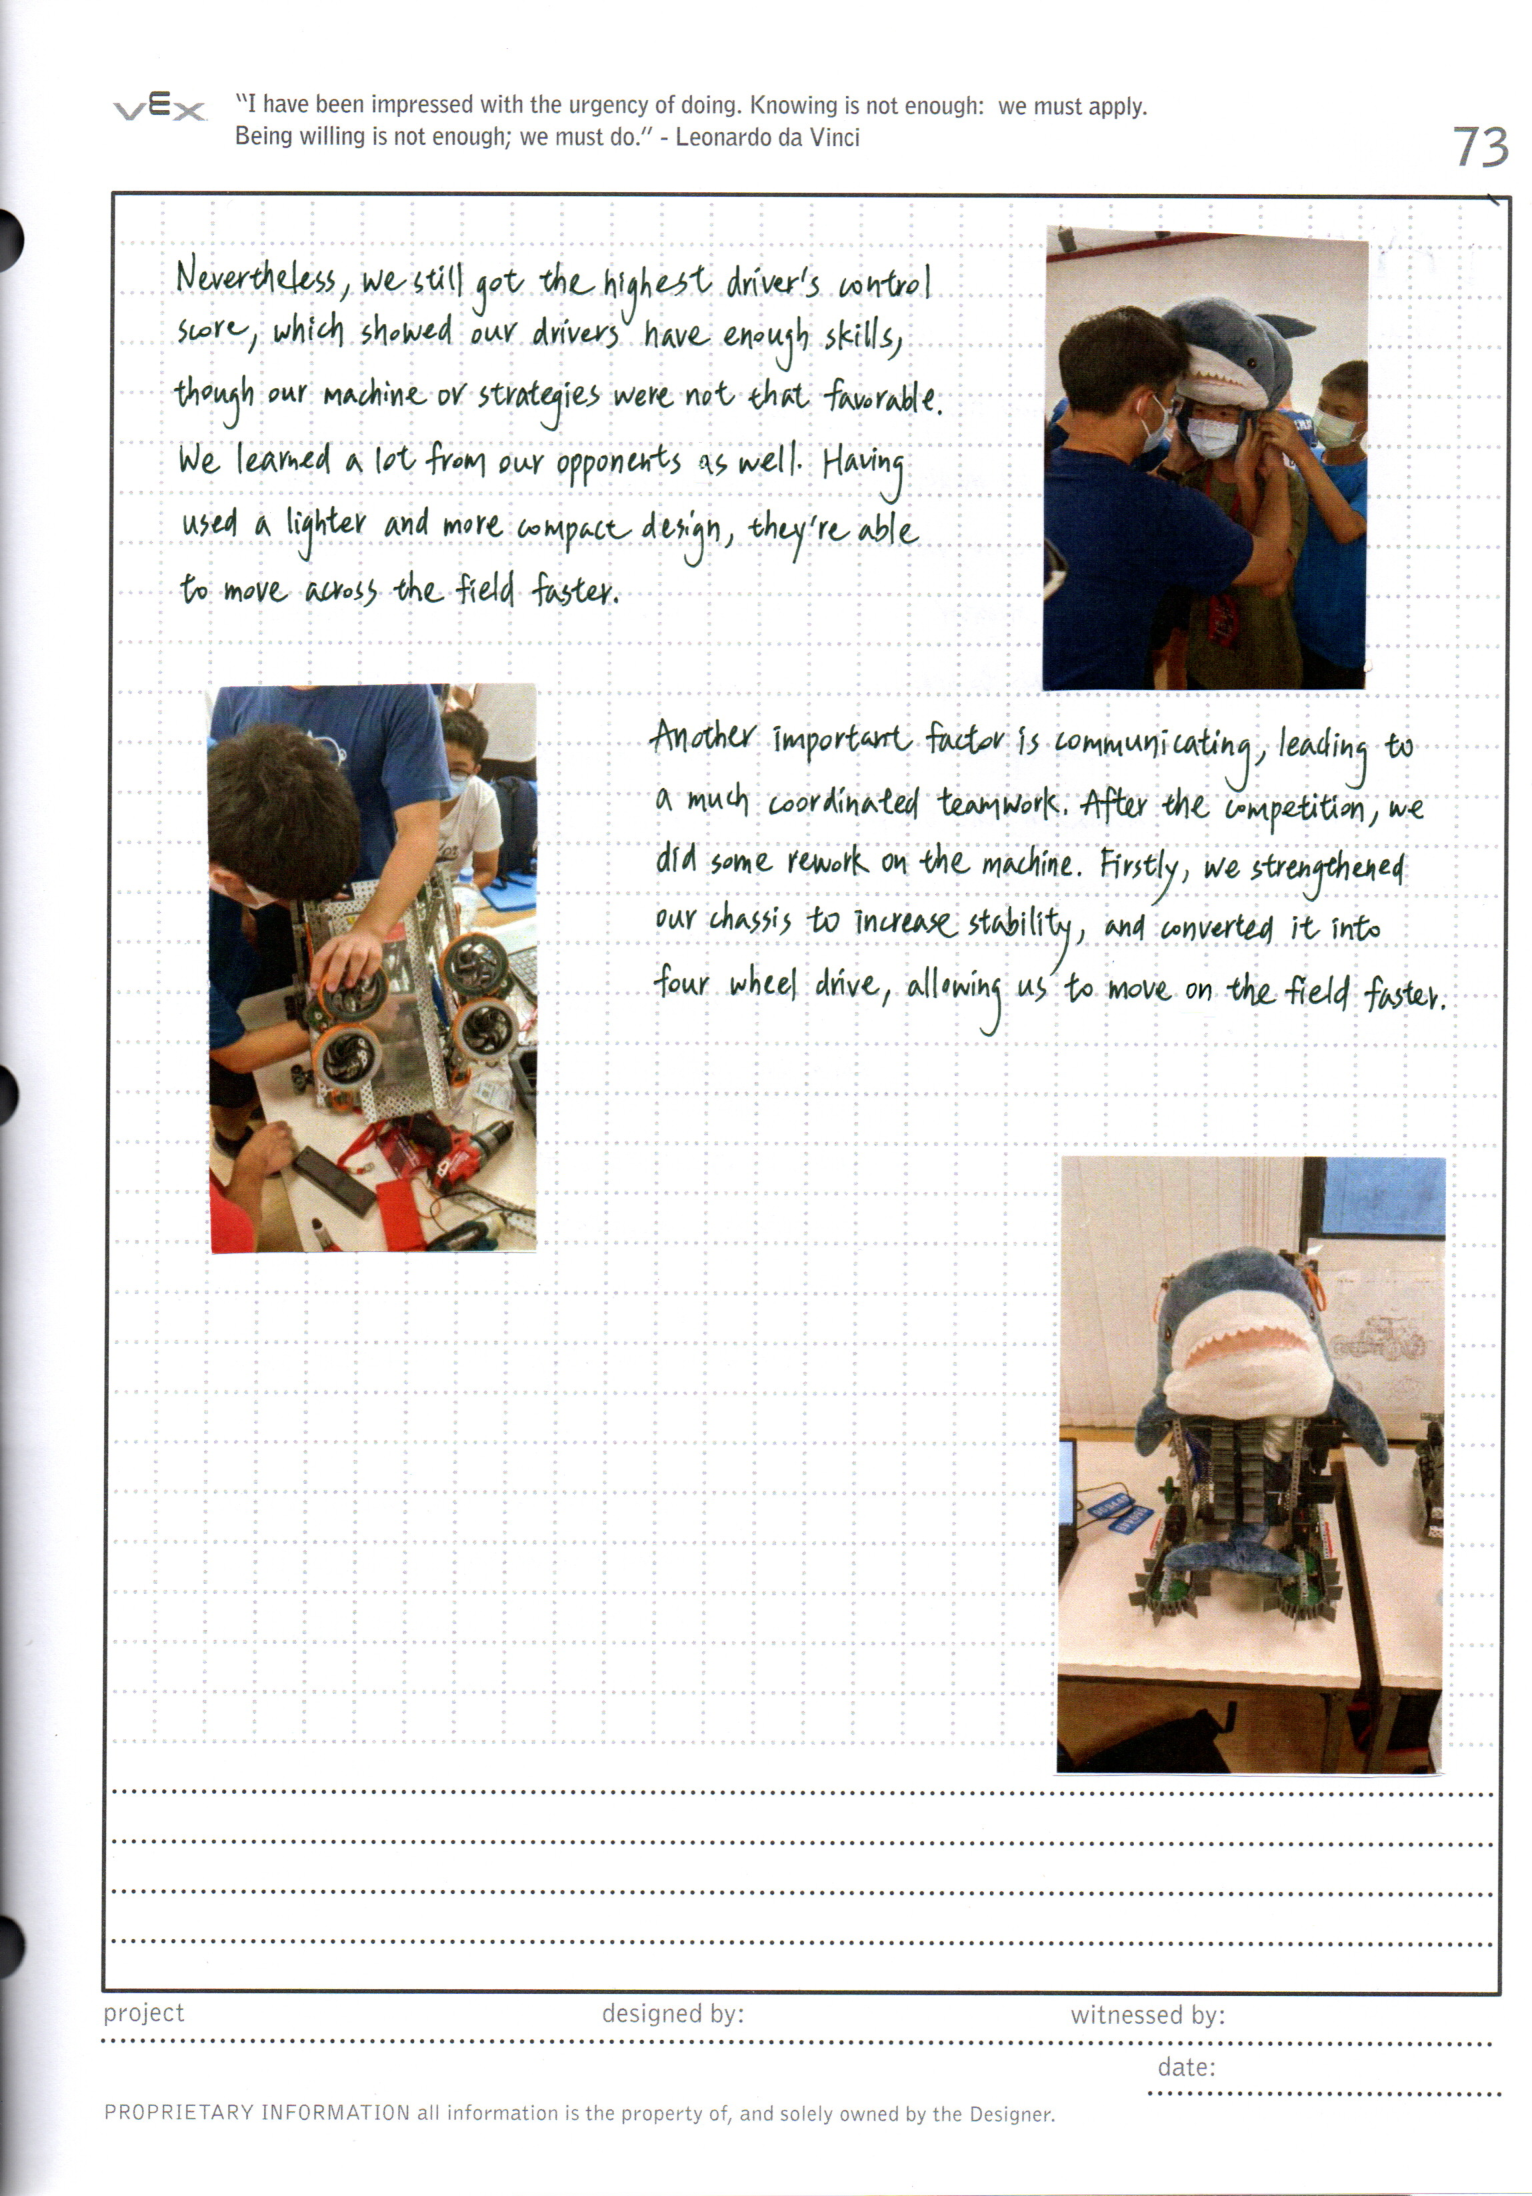 VEX
"I have been impressed with the urgency of doing. Knowing is not enough: we must apply.
Being willing is not enough; we must do." - Leonardo da Vinci
73
Nevertheless, we still got the highest driver's control
score, which showed our drivers have enough skills,
though our machine or strategies were not that favorable.
We learned a lot from our opponents as well. Having
used a lighter and more compact design, they're able
to move across the field faster.
Another important factor is communicating, leading to
a much coordinated teamwork. After the competition, we
did some rework on the machine. Firstly, we strengthened
our chassis to increase stability, and converted it into
four wheel drive, allowing us to move on the field faster.
project
designed by:
witnessed by:
date:
PROPRIETARY INFORMATION all information is the property of, and solely owned by the Designer.